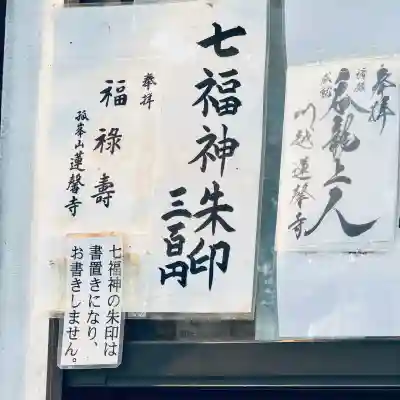 參拜
祈願
成就
呑龍上人
川越蓮馨寺
七福神朱印
三百円
奉拝
福祿壽
孤峯山蓮馨寺
七福神の朱印は
書置きになり、
お書きしません。